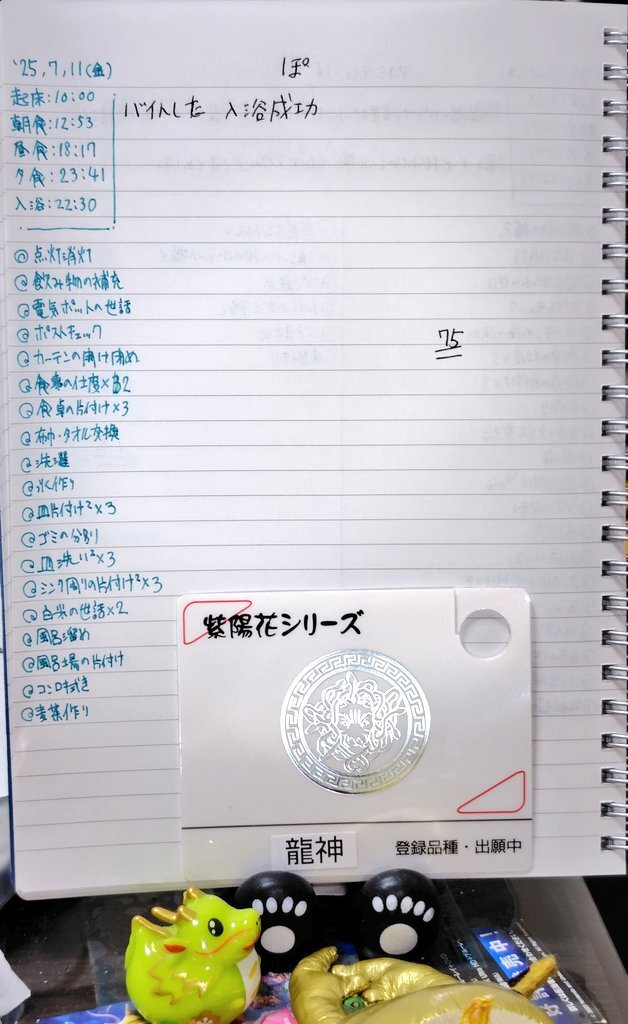 '25,7,11(金)
ぽ
起床:10:00
朝食:12:53
昼食:18:17
夕食:23:41
入浴:22:30
バイトした 入浴成功
◎点灯消灯
◎飲み物の補充
◎電気ポットの世話
◎ポストチェック
◎カーテンの開け閉め
◎食事の仕度×2
◎食卓の片付け×3
◎布巾・タオル交換
◎洗濯
◎氷作り
◎皿片付け²×3
◎ゴミの分別
◎皿洗い²×3
◎シンク周りの片付け²×3
◎白米の世話×2
◎風呂溜め
◎風呂上場の片付け
◎コンロ拭き
◎麦茶作り
75
紫陽花シリーズ
龍神
登録品種・出願中